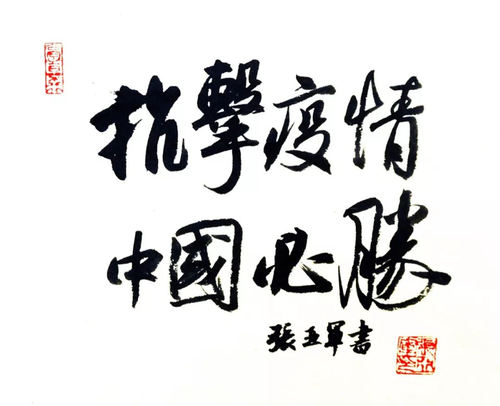 抗擊疫情
中國必勝
張五軍書